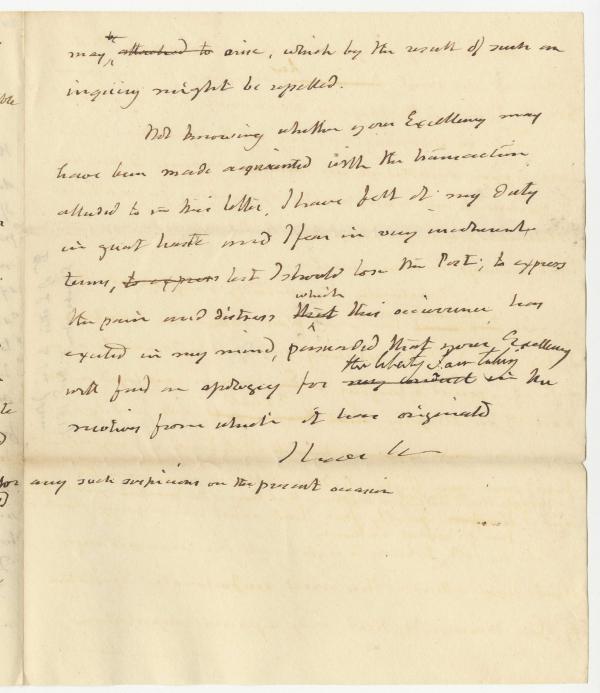 may attached to arise, which by the result of such an
inquiry might be repelled.
Not knowing whether your Excellency may
have been made acquainted with the transaction
alluded to in this letter, I have felt it my Duty
in great haste and I fear in very incoherent
terms, to express lest I should lose the Post; to express
which
the pain and distress that this occurrence has
excited in my mind, persuaded that your Excellency
the liberty I am taking
will find an apology for my conduct in the
motives from which it has originated
I have &c
for any such suspicions on the present occasion